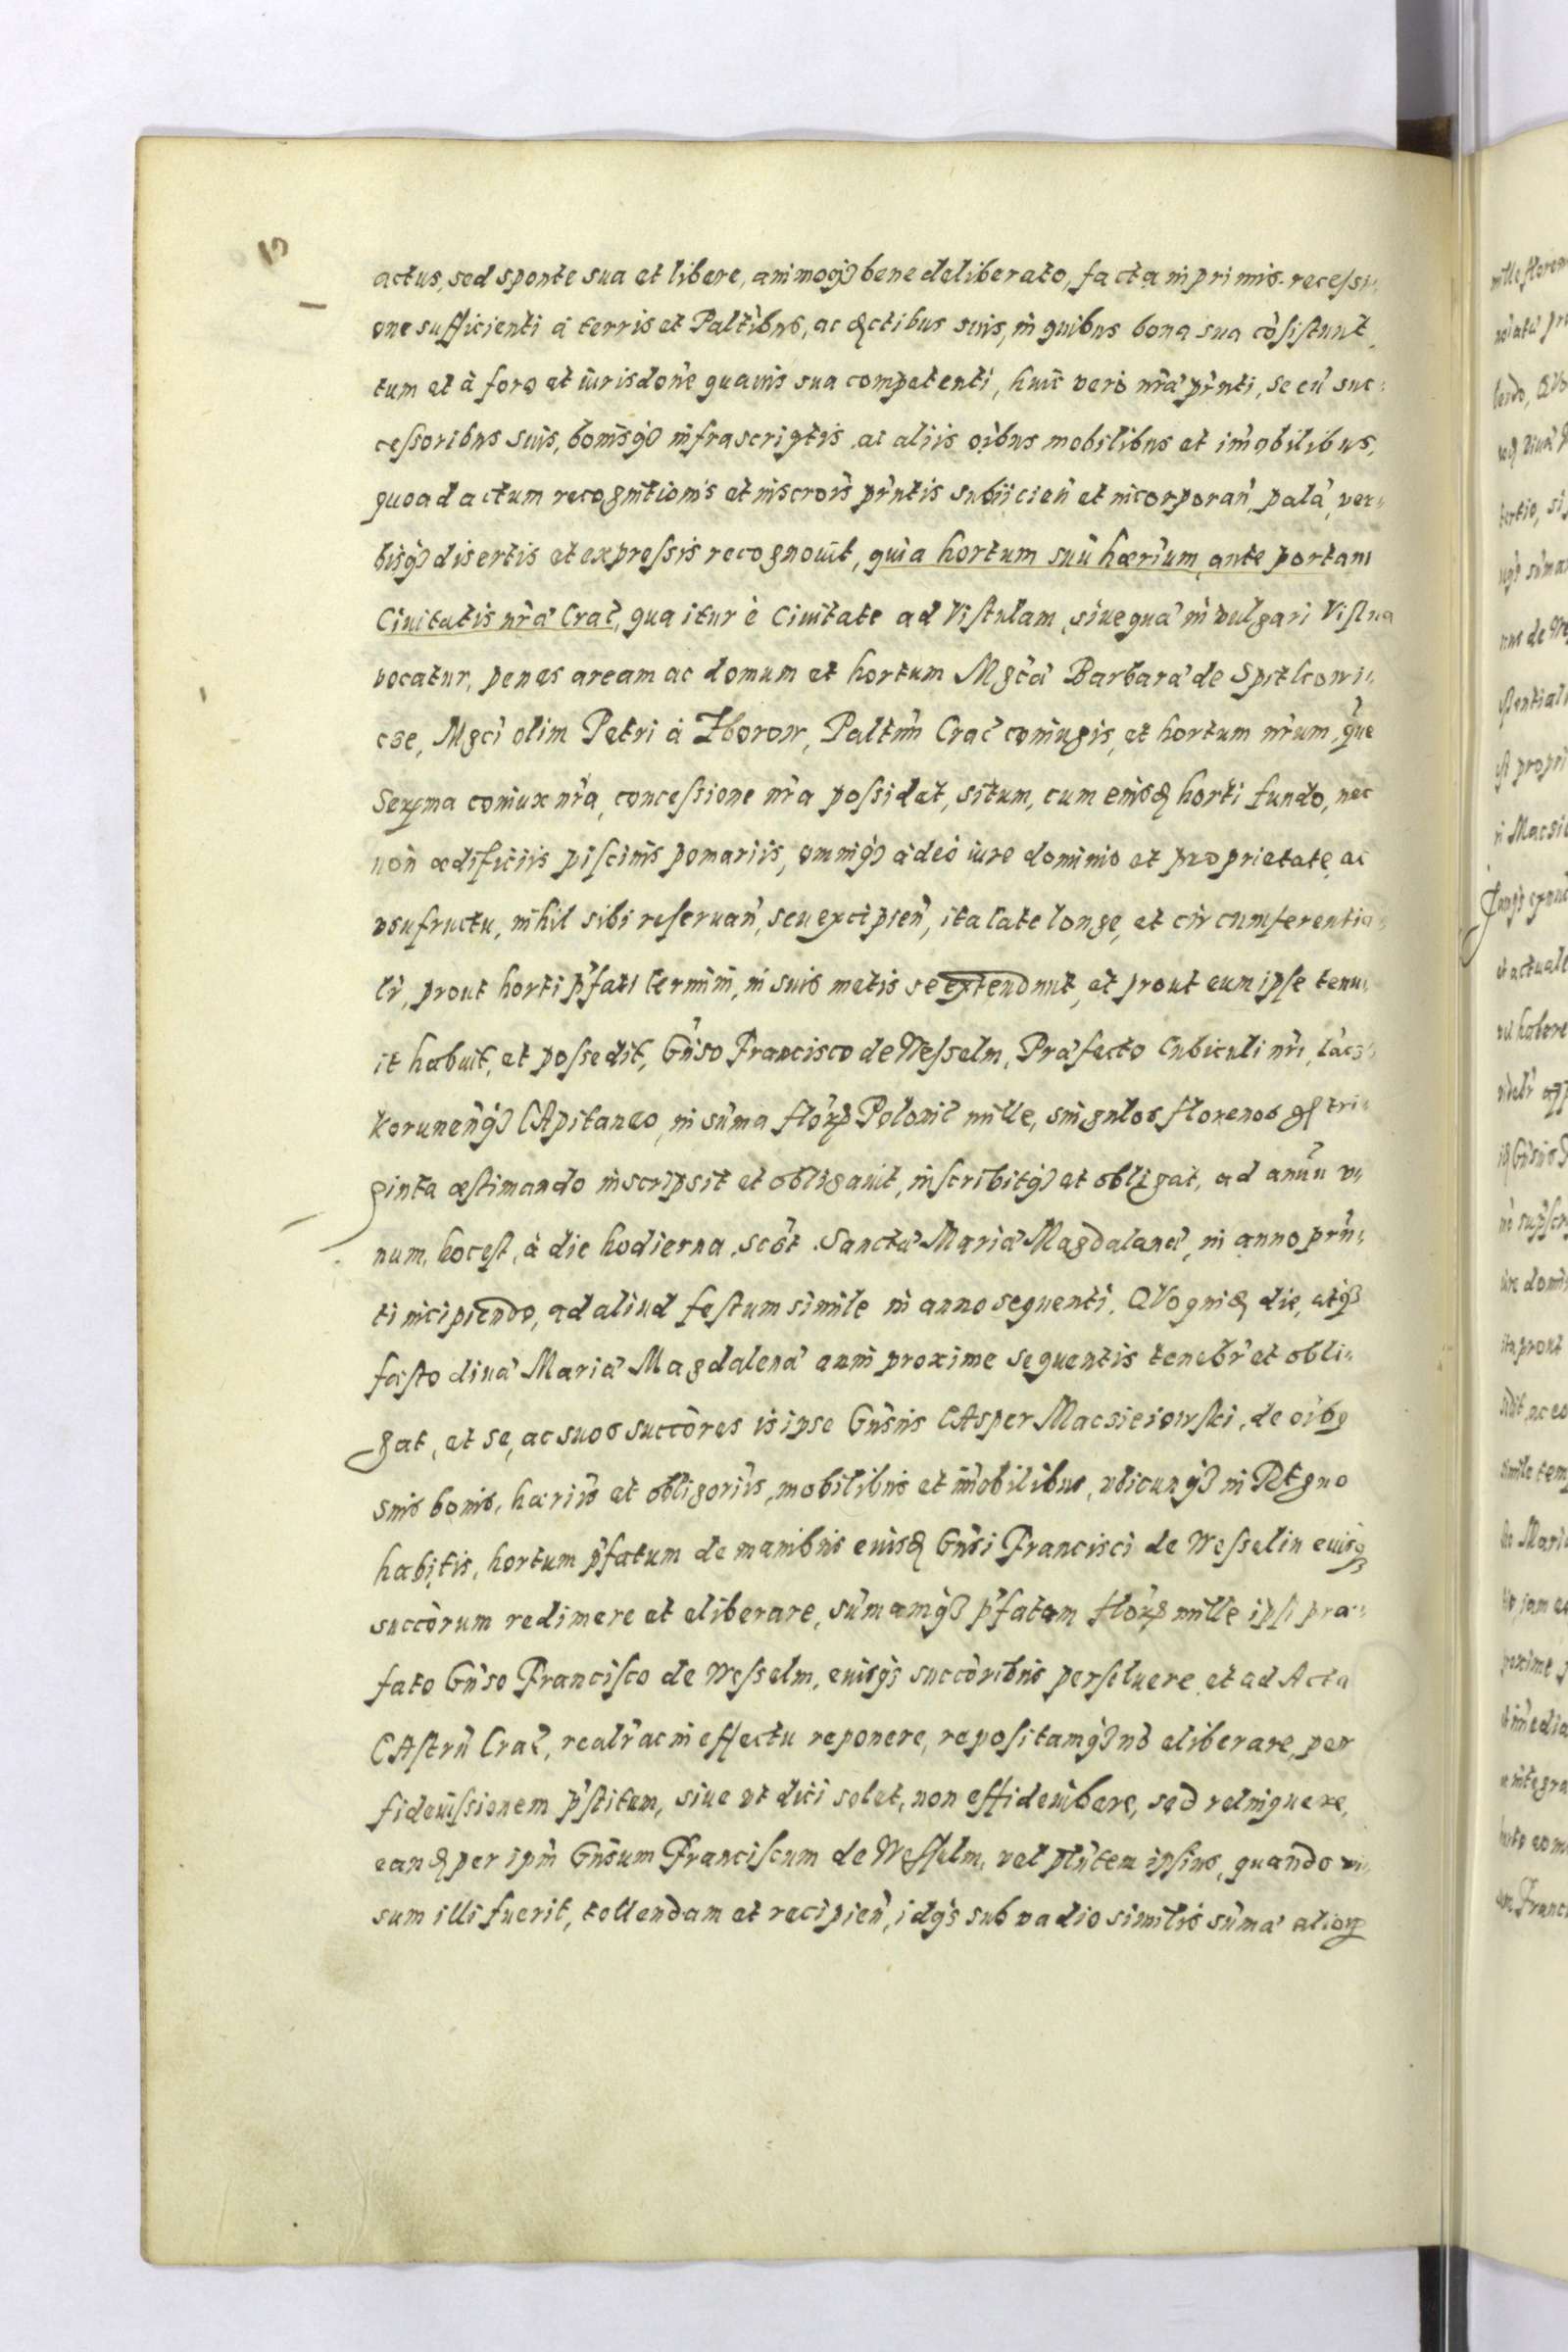 13
actus, sed sponte sua et libere, animoqȝ bene deliberato, facta in primis recessi„
one sufficienti à terris et Paltibus, ac dictibus suis, in quibus bona sua cōsistunt,
tum et à foro et iurisdōne quavis sua competenti, huic vero nrǣ prnti, se cū suc„
cessoribus suis, bonisqȝ infrascriptis ac aliis oībus mobilibus et im̄obilibus,
quoad actum recognitionis et inscrōis prntis subiicien̄ et incorporan̄, palā, ver„
bisqȝ disertis et expressis recognouit, quia hortum suū hærium, ante portam
Ciuitatis nrǣ Crac̄, qua itur è Ciuitate ad Vistulam, siue quæ in vulgari Visna
vocatur, penes aream ac domum et hortum Mgcǣ Barbaræ de Spitkowi„
cze, Mgci olim Petri à Zborow, Paltini Crac̄ coniugis, et hortum nrum, quē
Serma coniux nra, concessione nra possidet, situm, cum eiusd horti fundo, nec
non ædificiis piscinis pomariis, omniqȝ adeò iure dominio et proprietate, ac
vsufructu, nihil sibi reseruan̄, seu excipien̄, ita late longe, et circumferentia„
lr, prout horti pfati termini, in suis metis se extendunt, et prout eum ipse tenu„
it habuit, et possedit, Gnso Francisco de Wesselin, Præfecto Cubiculi nri, Lacz„
korunen̄qȝ CApitaneo, in sum̄a florȝ Polonic̄ mille, singulos florenos gr tri„
ginta æstimando inscripsit et obligauit, inscribitqȝ et obligat, ad an̄um v„
num, hoc est, à die hodierna, scōt Sanctæ Mariæ Magdalenæ, in anno prn„
ti incipiendo, ad aliud festum simile in anno sequenti. QVo quid die, atqȝ
festo diuæ Mariæ Magdalenæ anni proxime sequentis tenebr et obli„
gat, et se, ac suos succōres is ipse Gnsus CAsper Macsieiowski, de oībȝ
suis bonis, hæriis et obligoriis, mobilibus et im̄obilibus, vbicunqȝ in REgno
habitis, hortum pfatum de manibus eiusd Gnsi Francisci de Wesselin eiusqȝ
succōrum redimere et eliberare, sum̄amqȝ pfatam florȝ mille ipsi præ„
fato Gnso Francisco de Wesselin, eiusqȝ succōribus persoluere et ad Acta
CAstrn̄ Crac̄, realr ac in effectu reponere, repositamqȝ nō eliberare, per
fideiussionem pstitam, siue vt dici solet, non effideiubere, sed relinquere,
eand per ipm̄ Gnsum Franciscum de Wesselin, vel ptūtem ipsius, quando vi„
sum illi fuerit, tollendam et recipien̄, idqȝ sub vadio similis sum̄æ aliorȝ